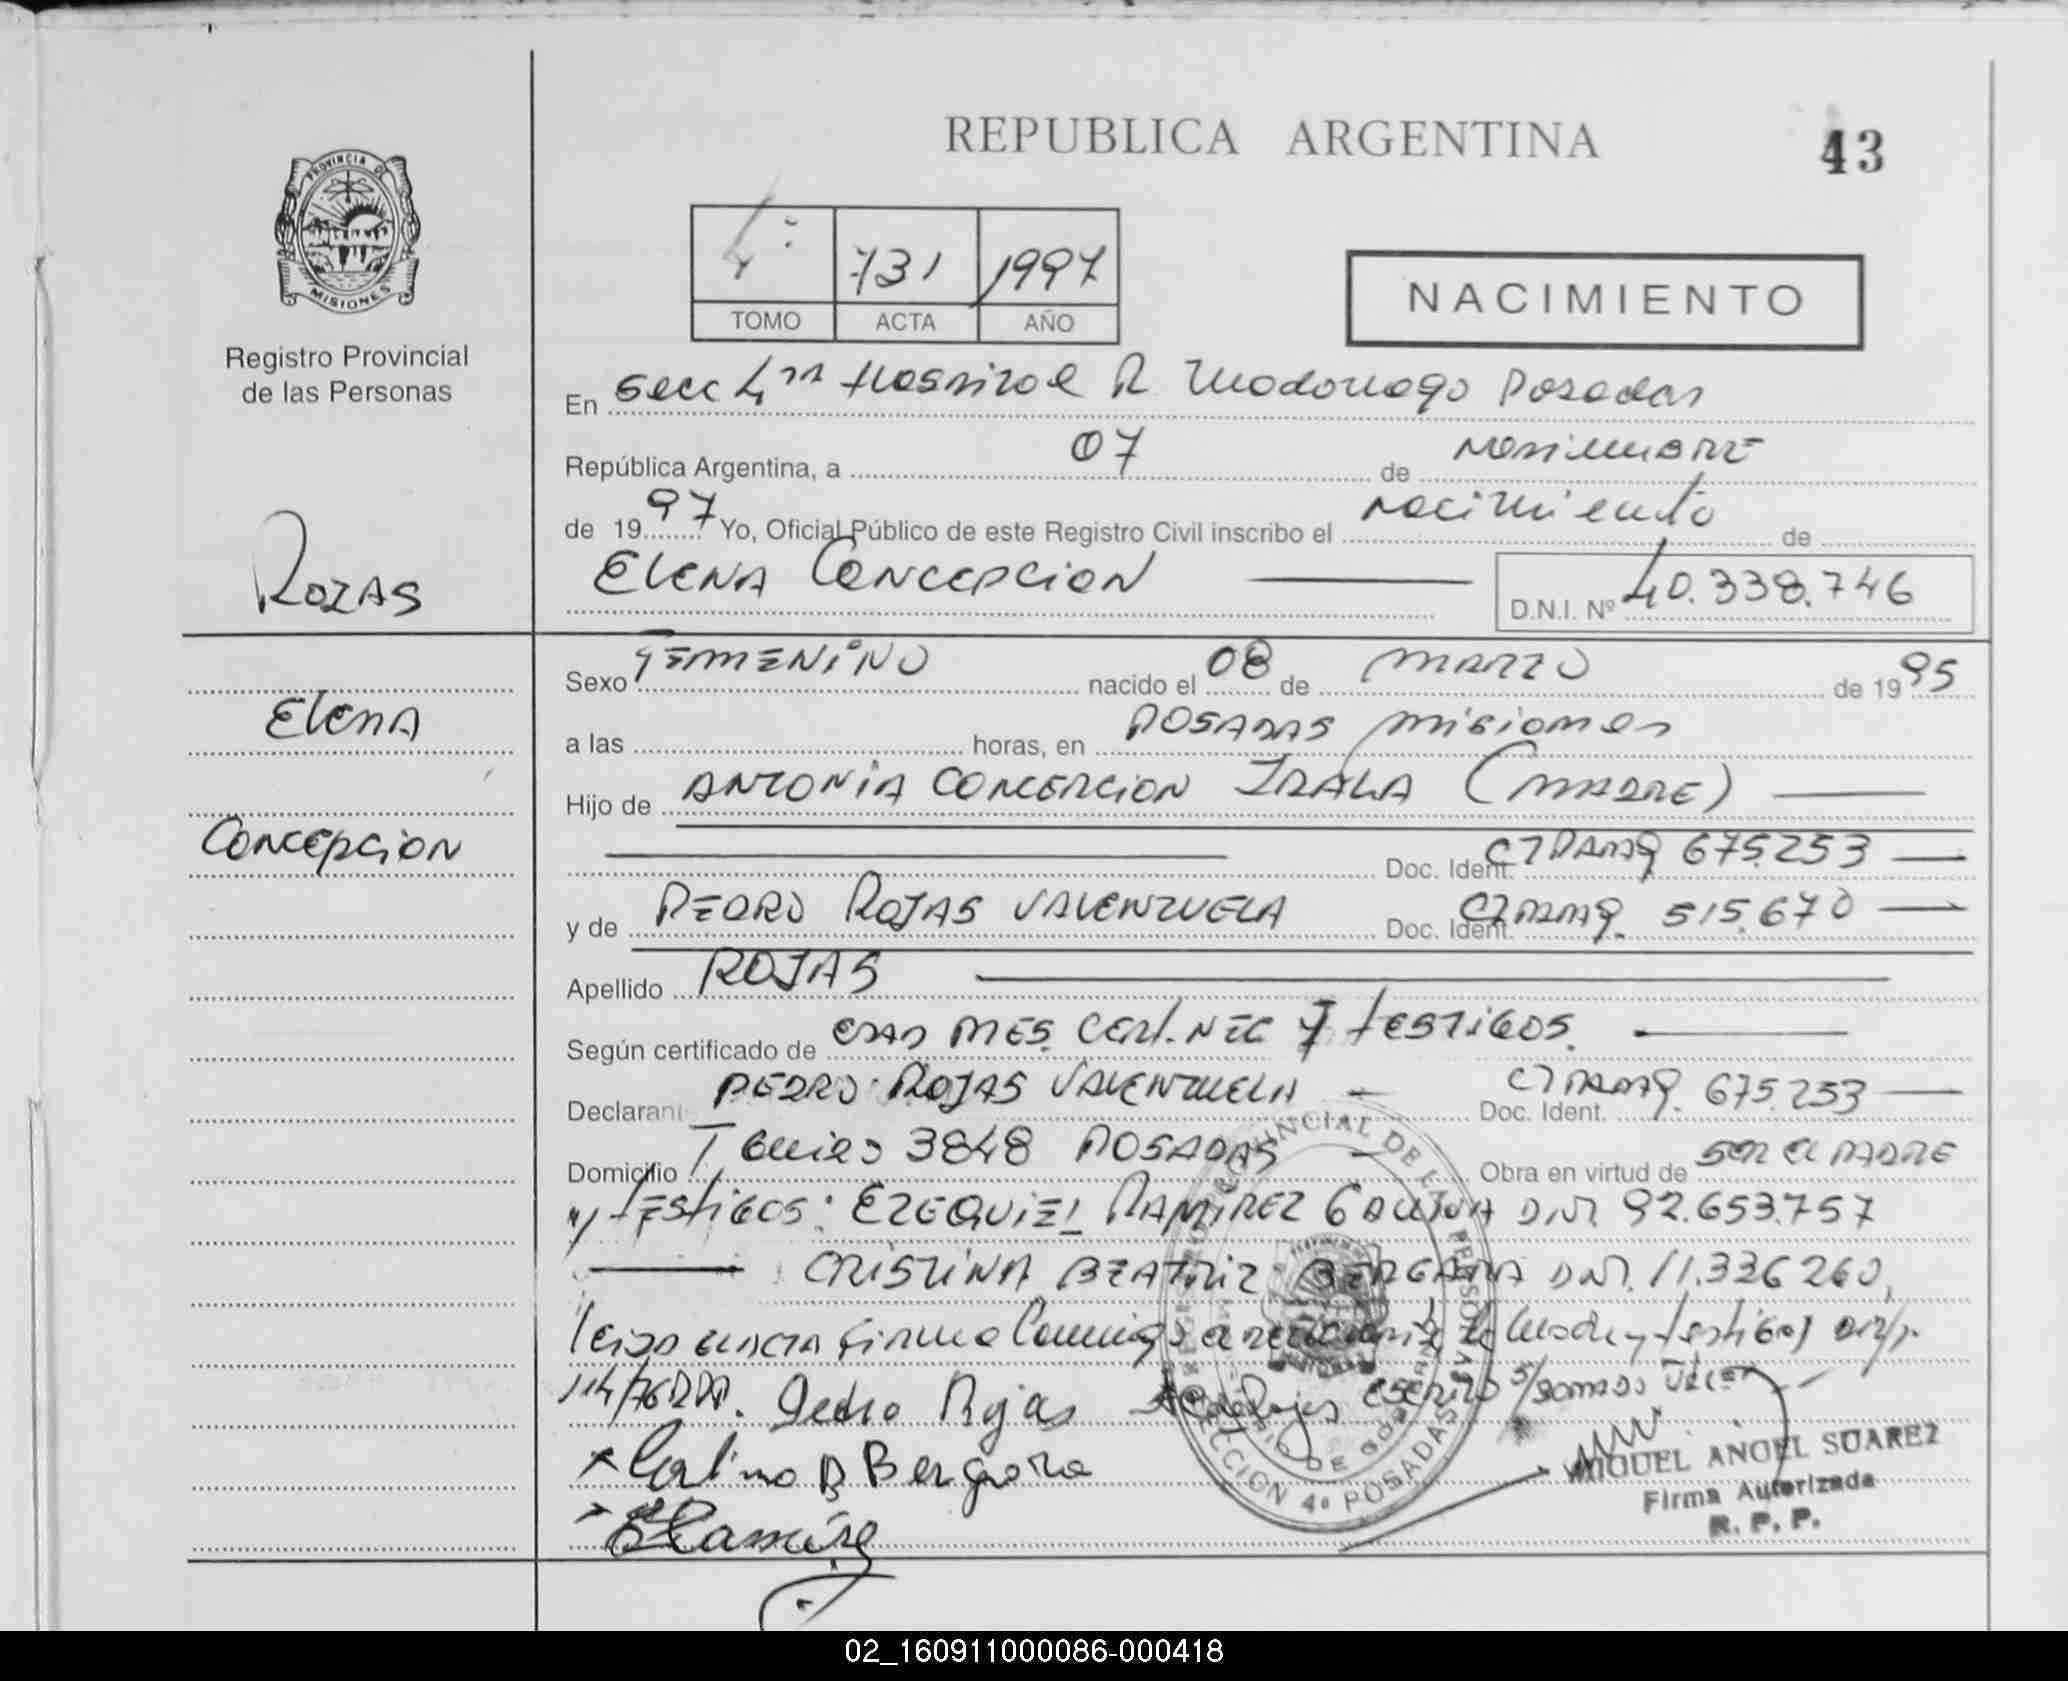 REPUBLICA ARGENTINA
43
PROVINCIA DE
MISIONES
Registro Provincial
de las Personas
4º 731 1997
TOMO ACTA AÑO
NACIMIENTO
En Secc 4ta Hospital R Madariaga Posadas
República Argentina, a 07 de Noviembre
de 1997 Yo, Oficial Público de este Registro Civil inscribo el nacimiento de
ELENA CONCEPCION
D.N.I. Nº 40.338.746
ROZAS
Elena
Concepcion
Sexo FEMENINO nacido el 08 de MARZO de 1995
a las horas, en POSADAS misiones
Hijo de ANTONIA CONCEPCION IRALA (MADRE)
Doc. Ident. CI PARAG 675.253
y de PEDRO ROJAS VALENZUELA Doc. Ident. CI PARAG. 515.670
Apellido ROJAS
Según certificado de MES. Cert. NEG y testigos.
Declarant PEDRO ROJAS VALENZUELA Doc. Ident. CI PARAG. 675.253
Domicilio 3848 POSADAS Obra en virtud de ser el PADRE
y testigos: EZEQUIEL RAMIREZ DNI. 92.653.757
CRISTINA BEATRIZ BERGARA DNI. 11.336.260,
leida el acta firma conmigo el la madre y testigos
Pedro Rojas escrito s/borrado Vale
B Bergara
Ramírez
REGISTRO PROVINCIAL DE LAS PERSONAS
SECCION 4º POSADAS
MIGUEL ANGEL SUAREZ
Firma Autorizada
R. P. P.
02_160911000086-000418